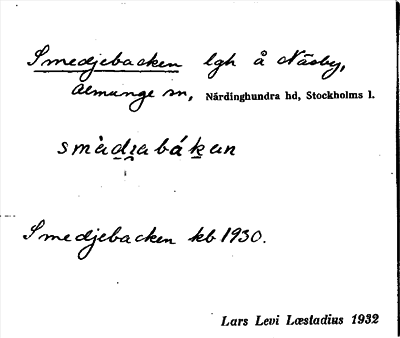 Smedjebacken lgh å Näsby,
Almunge sn, Närdinghundra hd, Stockholms l.
smὰd̲ɪabák̲an
Smedjebacken kb 1930.
Lars Levi Læstadius 1932